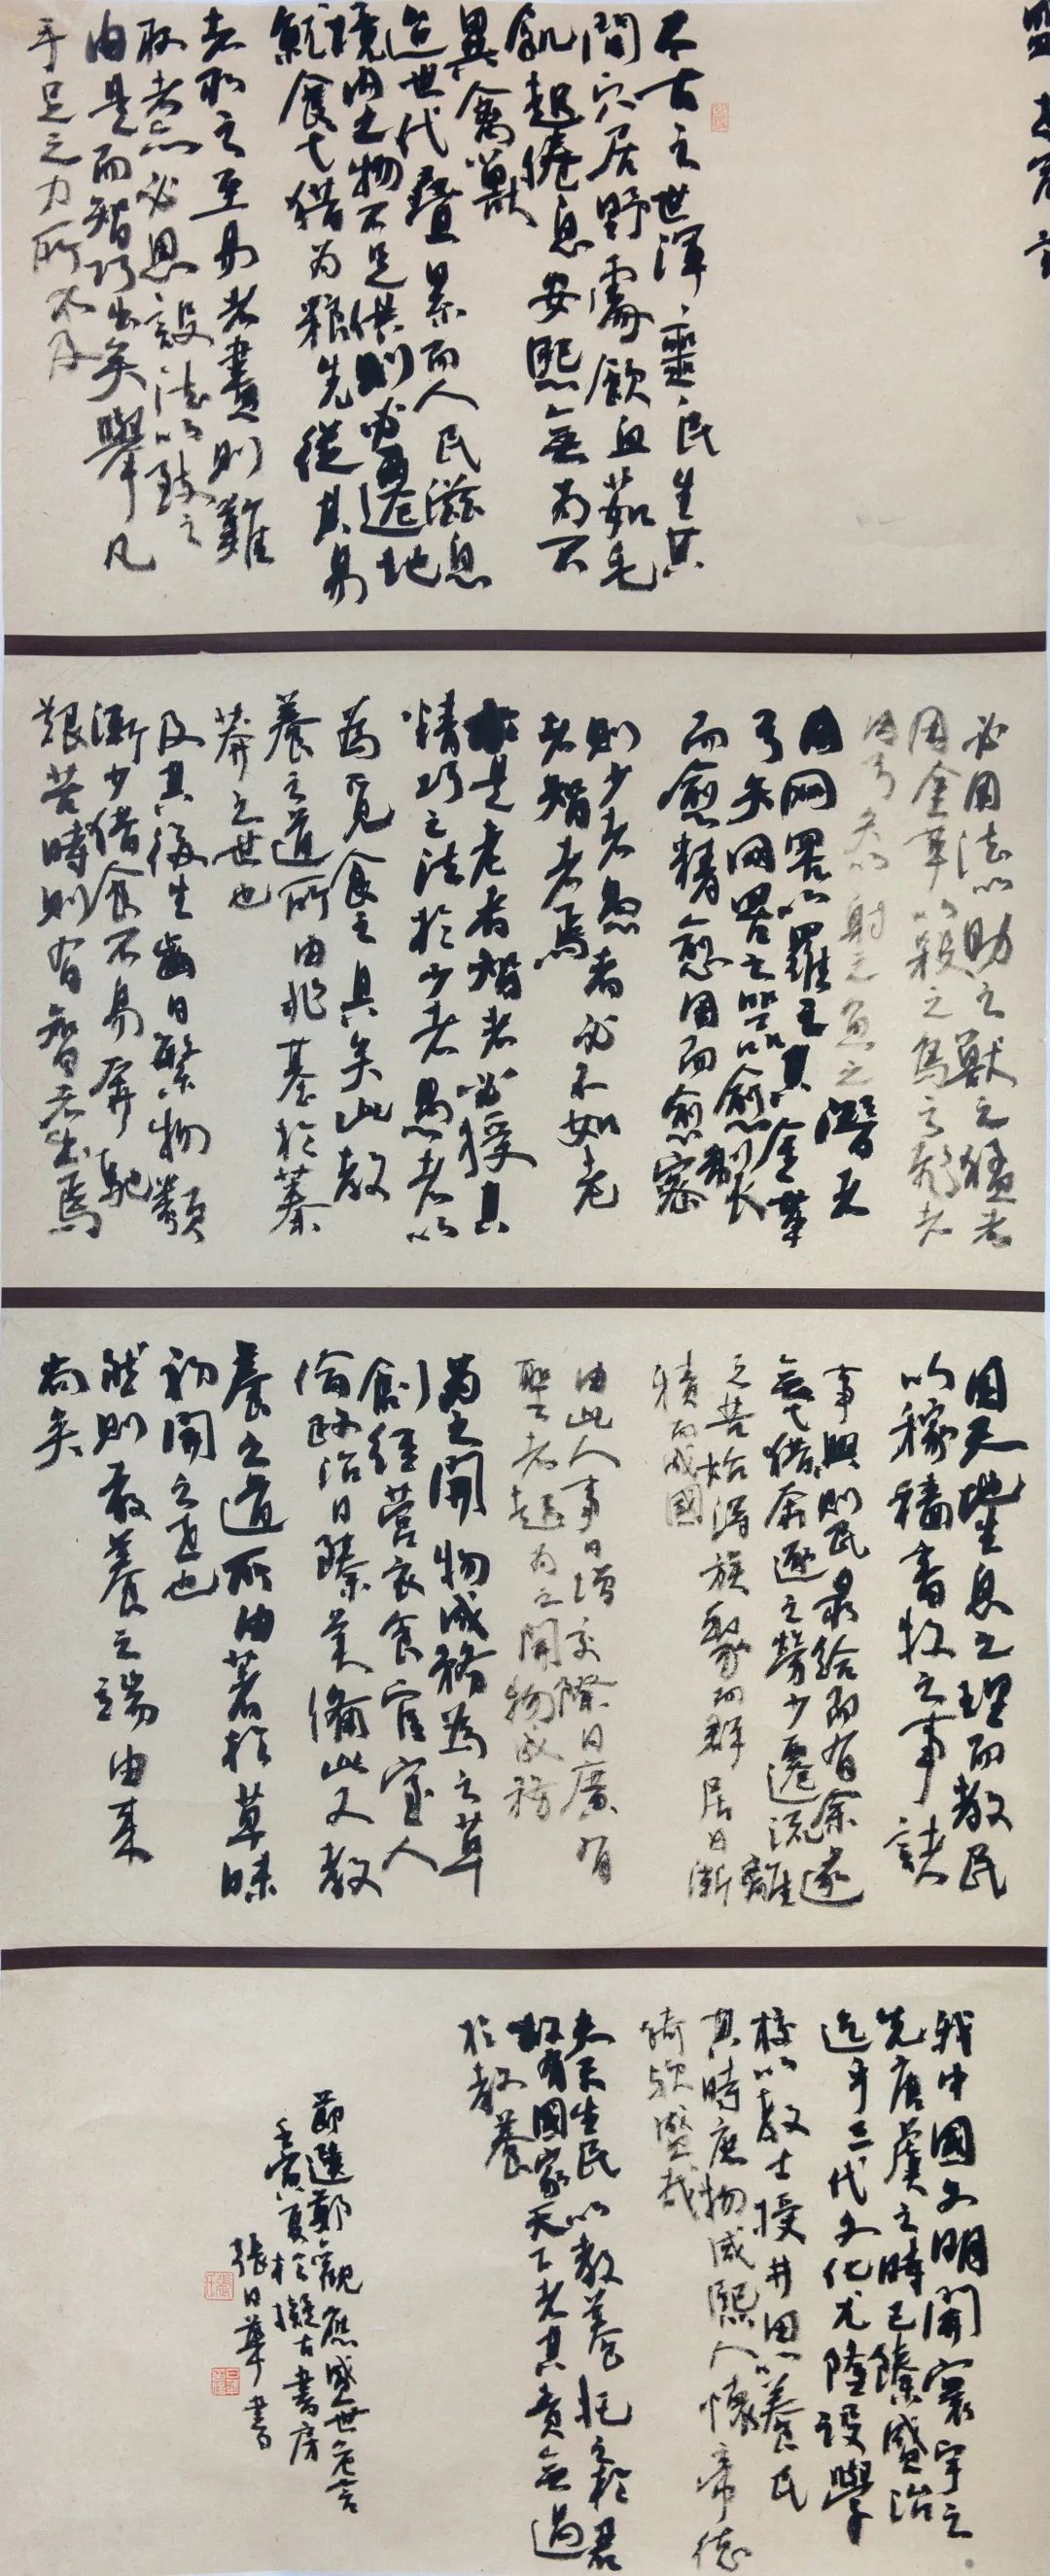 太古之世渾渾噩噩民生其
間穴居野處飲血茹毛
飢起倦息安熙無為不
異禽獸
迨世代疊累而人民滋息
境內生物不足供則必遷地
就食弋猎为粮先從其易
者取之至易者盡則難
取者亦必思設法以致之
由是而智巧出矣舉凡
手足之力所不及
必用法以助之獸之猛者
用金革以殺之鳥之翔者
用弓矢以射之魚之潛者
用網罟以羅之其金革
弓矢網罟之器愈製
而愈精愈用而愈密
則少者愚者必不如老
者智者焉
於是老者智者必授其
精巧之法於少者愚者以
為覓食之具矣此教
養之道所由兆基於蓁
莽之世也
及其後生齒日繁物類
漸少猎食不易奔馳
艱苦時則有智者出焉
因天地生息之理而教民
以稼穡畜牧之事誅
事興則民食給而有余遂
無弋猎奔逐之勞少遷流離
之苦始得族聚而群居日漸
積而成國
由此人事日增交際日廣有
聖者起为之開物成務
為之開物成務為之草
創經營衣食官室人
倫政治日臻美備此又教
養之道所由著於草昧
初開之世也
然則教養之端由来
尚矣
我中國文明開寰宇之
先唐虞之時已臻盛治
迄乎三代文化尤隆設學
校以教士授井田以養民
其時庶物咸熙人懷帝德
猗歟盛哉
夫天生民以教養托之於君
故有國家天下者其責無過
於教養
節選鄭觀應盛世危言
壬寅夏於擬古書房
張日華書